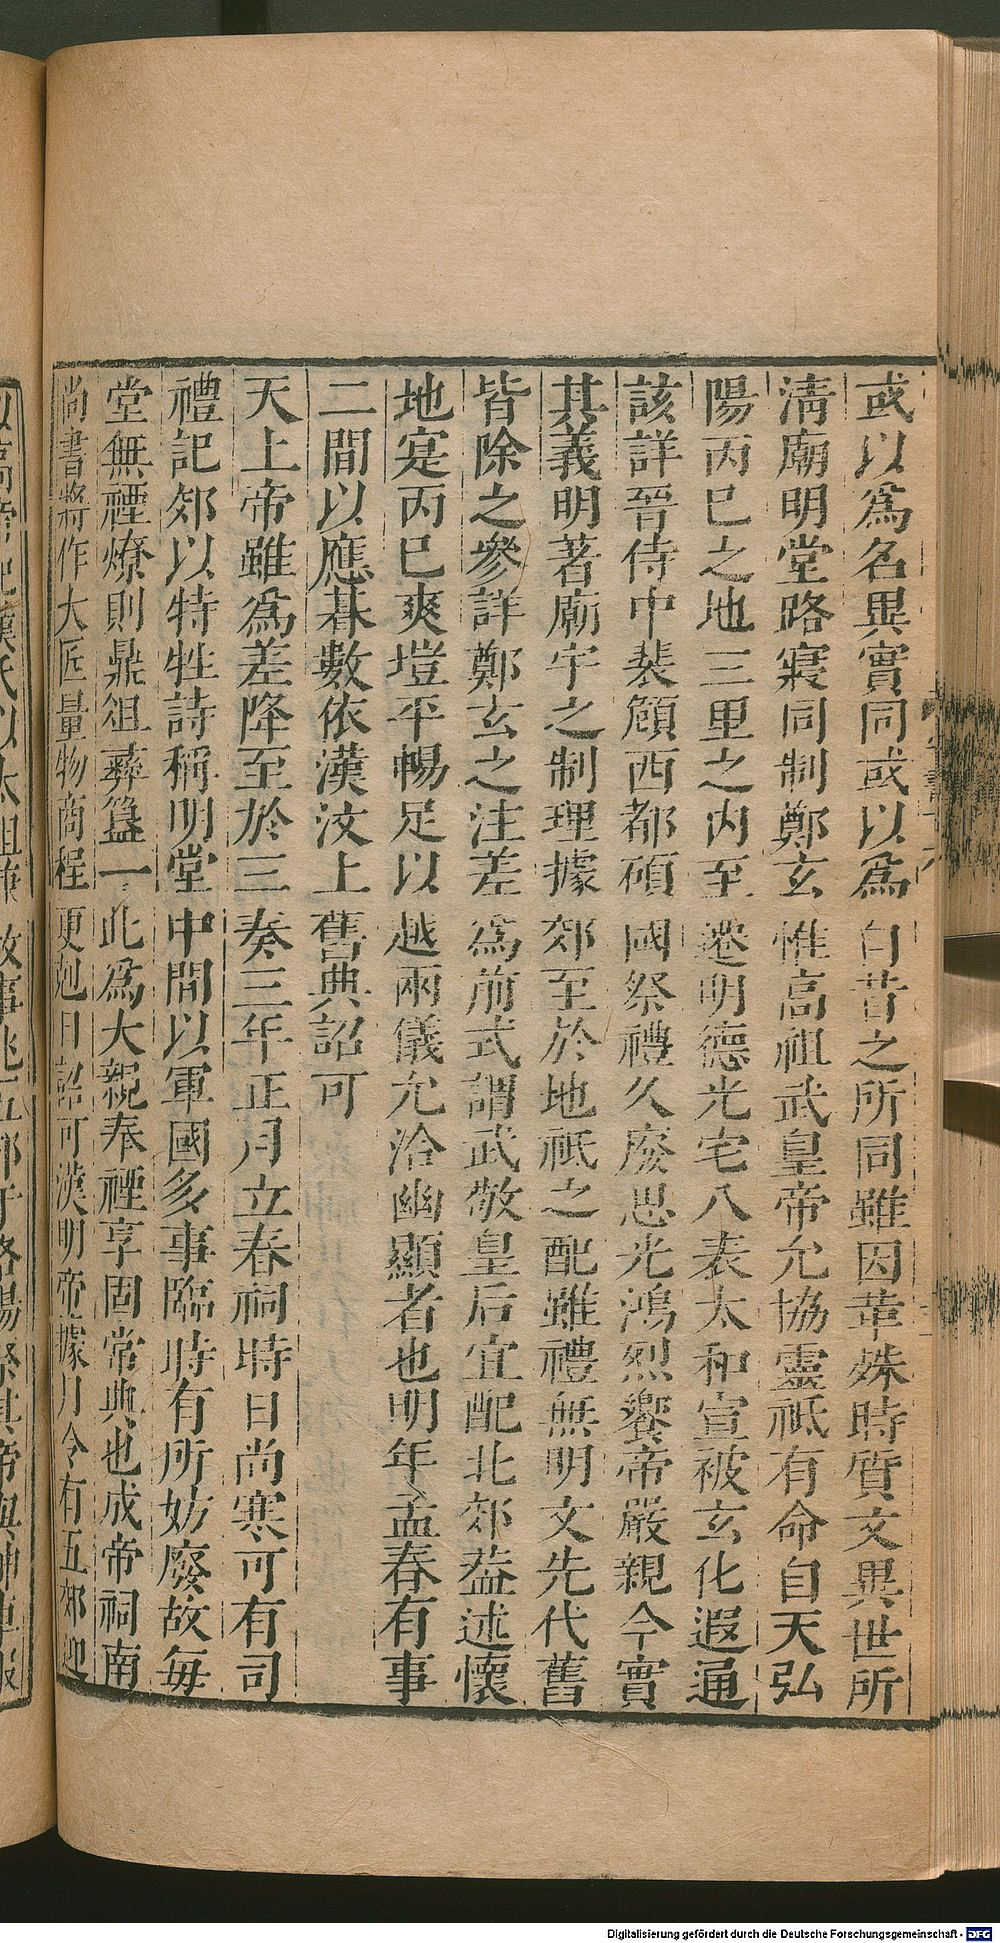 或以爲名異實同或以爲自昔之所同雖因革殊時質文異世所
淸廟明堂路寢同制鄭玄惟高祖武皇帝允協靈祗有命自天弘
陽丙巳之地三里之內至遷明德光宅八表太和宣被玄化遐通
該詳晉侍中裴頠西都碩國祭禮久廢思光鴻烈饗帝嚴親今實
其義明著廟宇之制理據郊至於地祇之配雖禮無明文先代舊
皆除之參詳鄭玄之注差爲前式謂武敬皇后宜配北郊葢述懷
地寔丙巳爽塏平暢足以越兩儀允洽幽顯者也明年孟春有事
二間以應朞數依漢汶上舊典詔可
天上帝雖爲差降至於三奏三年正月立春祠時日尚寒可有司
禮記郊以特牲詩稱明堂中間以軍國多事臨時有所妨廢故每
堂無禋燎則鼎俎彝簋一此爲大親奉禋享固常典也成帝祠南
尚書將作大匠量物商程更剋日詔可漢明帝據月令有五郊迎
Digitalisierung gefördert durch die Deutsche Forschungsgemeinschaft - DFG